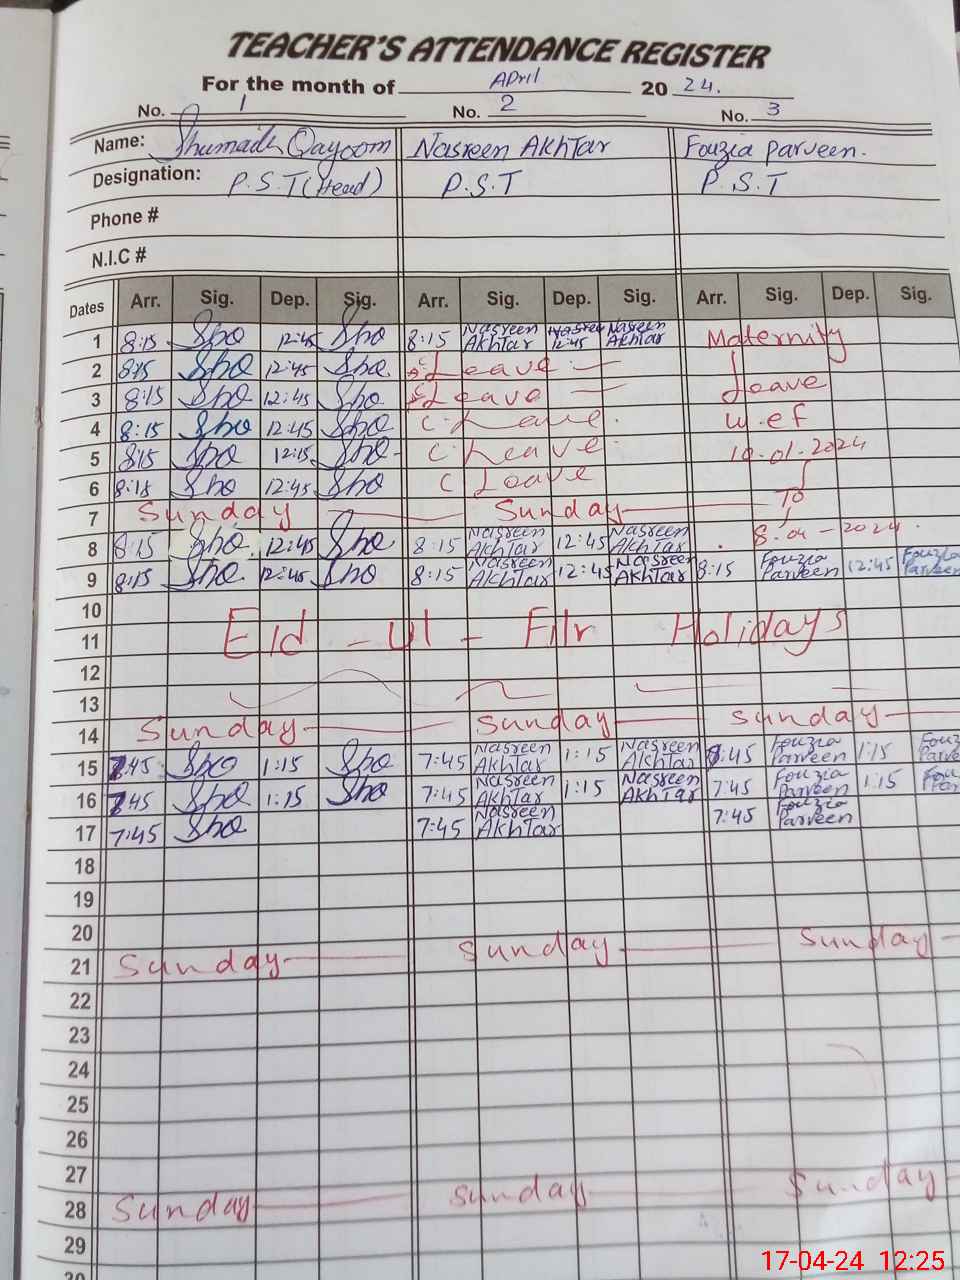 TEACHER'S ATTENDANCE REGISTER
For the month of April 20 24.
No. 1 No. 2 No. 3
Name: Shumaila Qayoom Nasreen AKhTar Fouzia Parveen.
Designation: P.S.T (Head) P.S.T P.S.T
Phone #
N.I.C #
Dates Arr. Sig. Dep. Sig. Arr. Sig. Dep. Sig. Arr. Sig. Dep. Sig.
1 8:15 Sho 12:45 Sho 8:15 Nasreen AkhTar 12:45 Nasreen AkhTar Maternity
2 8:15 Sho 12:45 Sho C. Leave Leave
3 8:15 Sho 12:45 Sho C. Leave w.e.f
4 8:15 Sho 12:45 Sho C. Leave. 10.01.2024
5 8:15 Sho 12:15 Sho C Leave To
6 8:15 Sho 12:45 Sho C Leave
7 Sunday Sunday 8.04-2024.
8 8:15 Sho 12:45 Sho 8:15 Nasreen AkhTar 12:45 Nasreen AkhTar
9 8:15 Sho 12:45 Sho 8:15 Nasreen AkhTar 12:45 Nasreen AkhTar 8:15 Fouzia Parveen 12:45 Fouzia Parveen
10
11 Eid - ul - Fitr Holidays
12
13
14 Sunday Sunday Sunday
15 7:45 Sho 1:15 Sho 7:45 Nasreen AkhTar 1:15 Nasreen AkhTar 7:45 Fouzia Parveen 1:15
16 7:45 Sho 1:15 Sho 7:45 Nasreen AkhTar 1:15 Nasreen AkhTar 7:45 Fouzia Parveen 1:15
17 7:45 Sho 7:45 Nasreen AkhTar 7:45 Fouzia Parveen
18
19
20
21 Sunday Sunday Sunday
22
23
24
25
26
27
28 Sunday Sunday Sunday
29
30
17-04-24 12:25